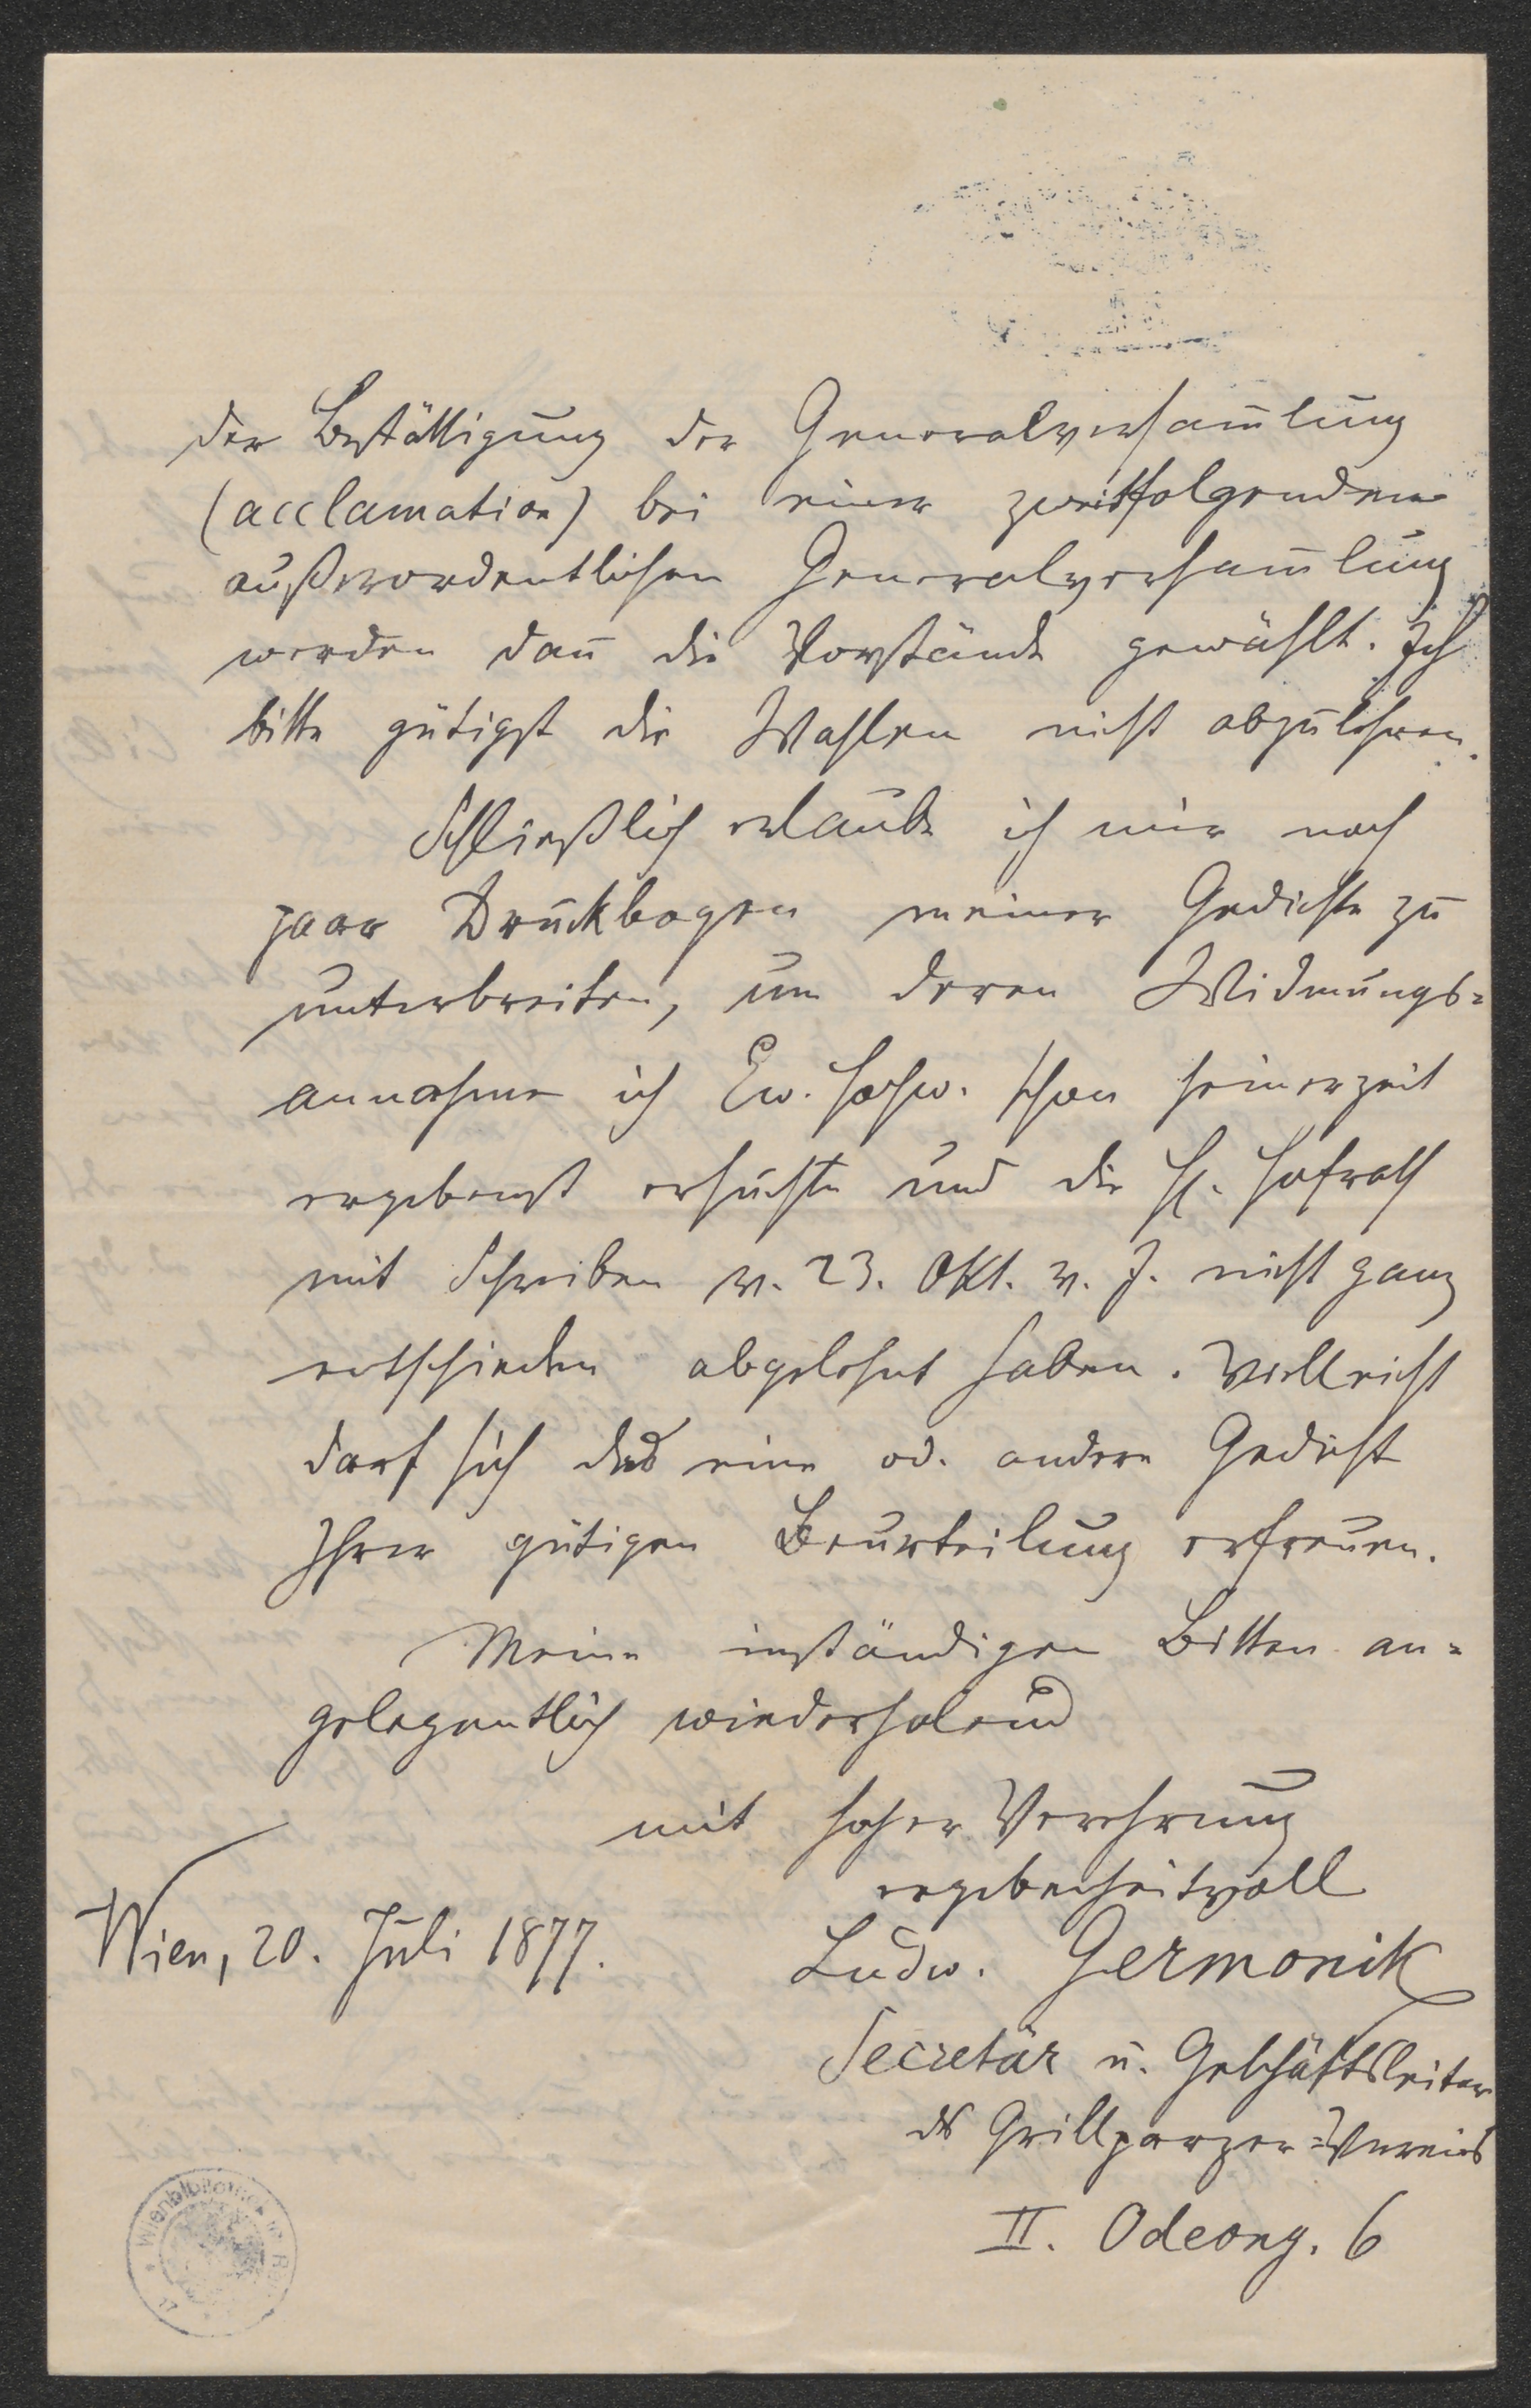 der Bestättigung der Generalversam̄lung
(acclamation) bei einer zweitfolgenden
außerordentlichen Generalversam̄lung
werden dan̄ die Vorstände gewählt. Ich
bitte gütigst die Wahlen nicht abzulehnen.
Schließlich erlaube ich mir noch
paar Druckbogen meiner Gedichte zu
unterbreiten, um deren Widmungs=
annahme ich Ew. Hochw. schon seinerzeit
ergebenst ersuchte und die H. Hofrath
mit Schreiben v. 23. Okt. v. J. nicht ganz
entschieden abgelehnt haben. Velleicht
darf sich das eine od. andere Gedicht
Ihrer gütigen Beurteilung erfreuen.
Meine inständigen Bitten an=
gelegentlich wiederholend
mit hoher Verehrung
ergebenheitvoll
Wien, 20. Juli 1877.
Ludw. Germonik
Secretär u. Geschäftsleiter
des Grillparzer=Vereins
II. Odeong. 6
Wienbibliothek